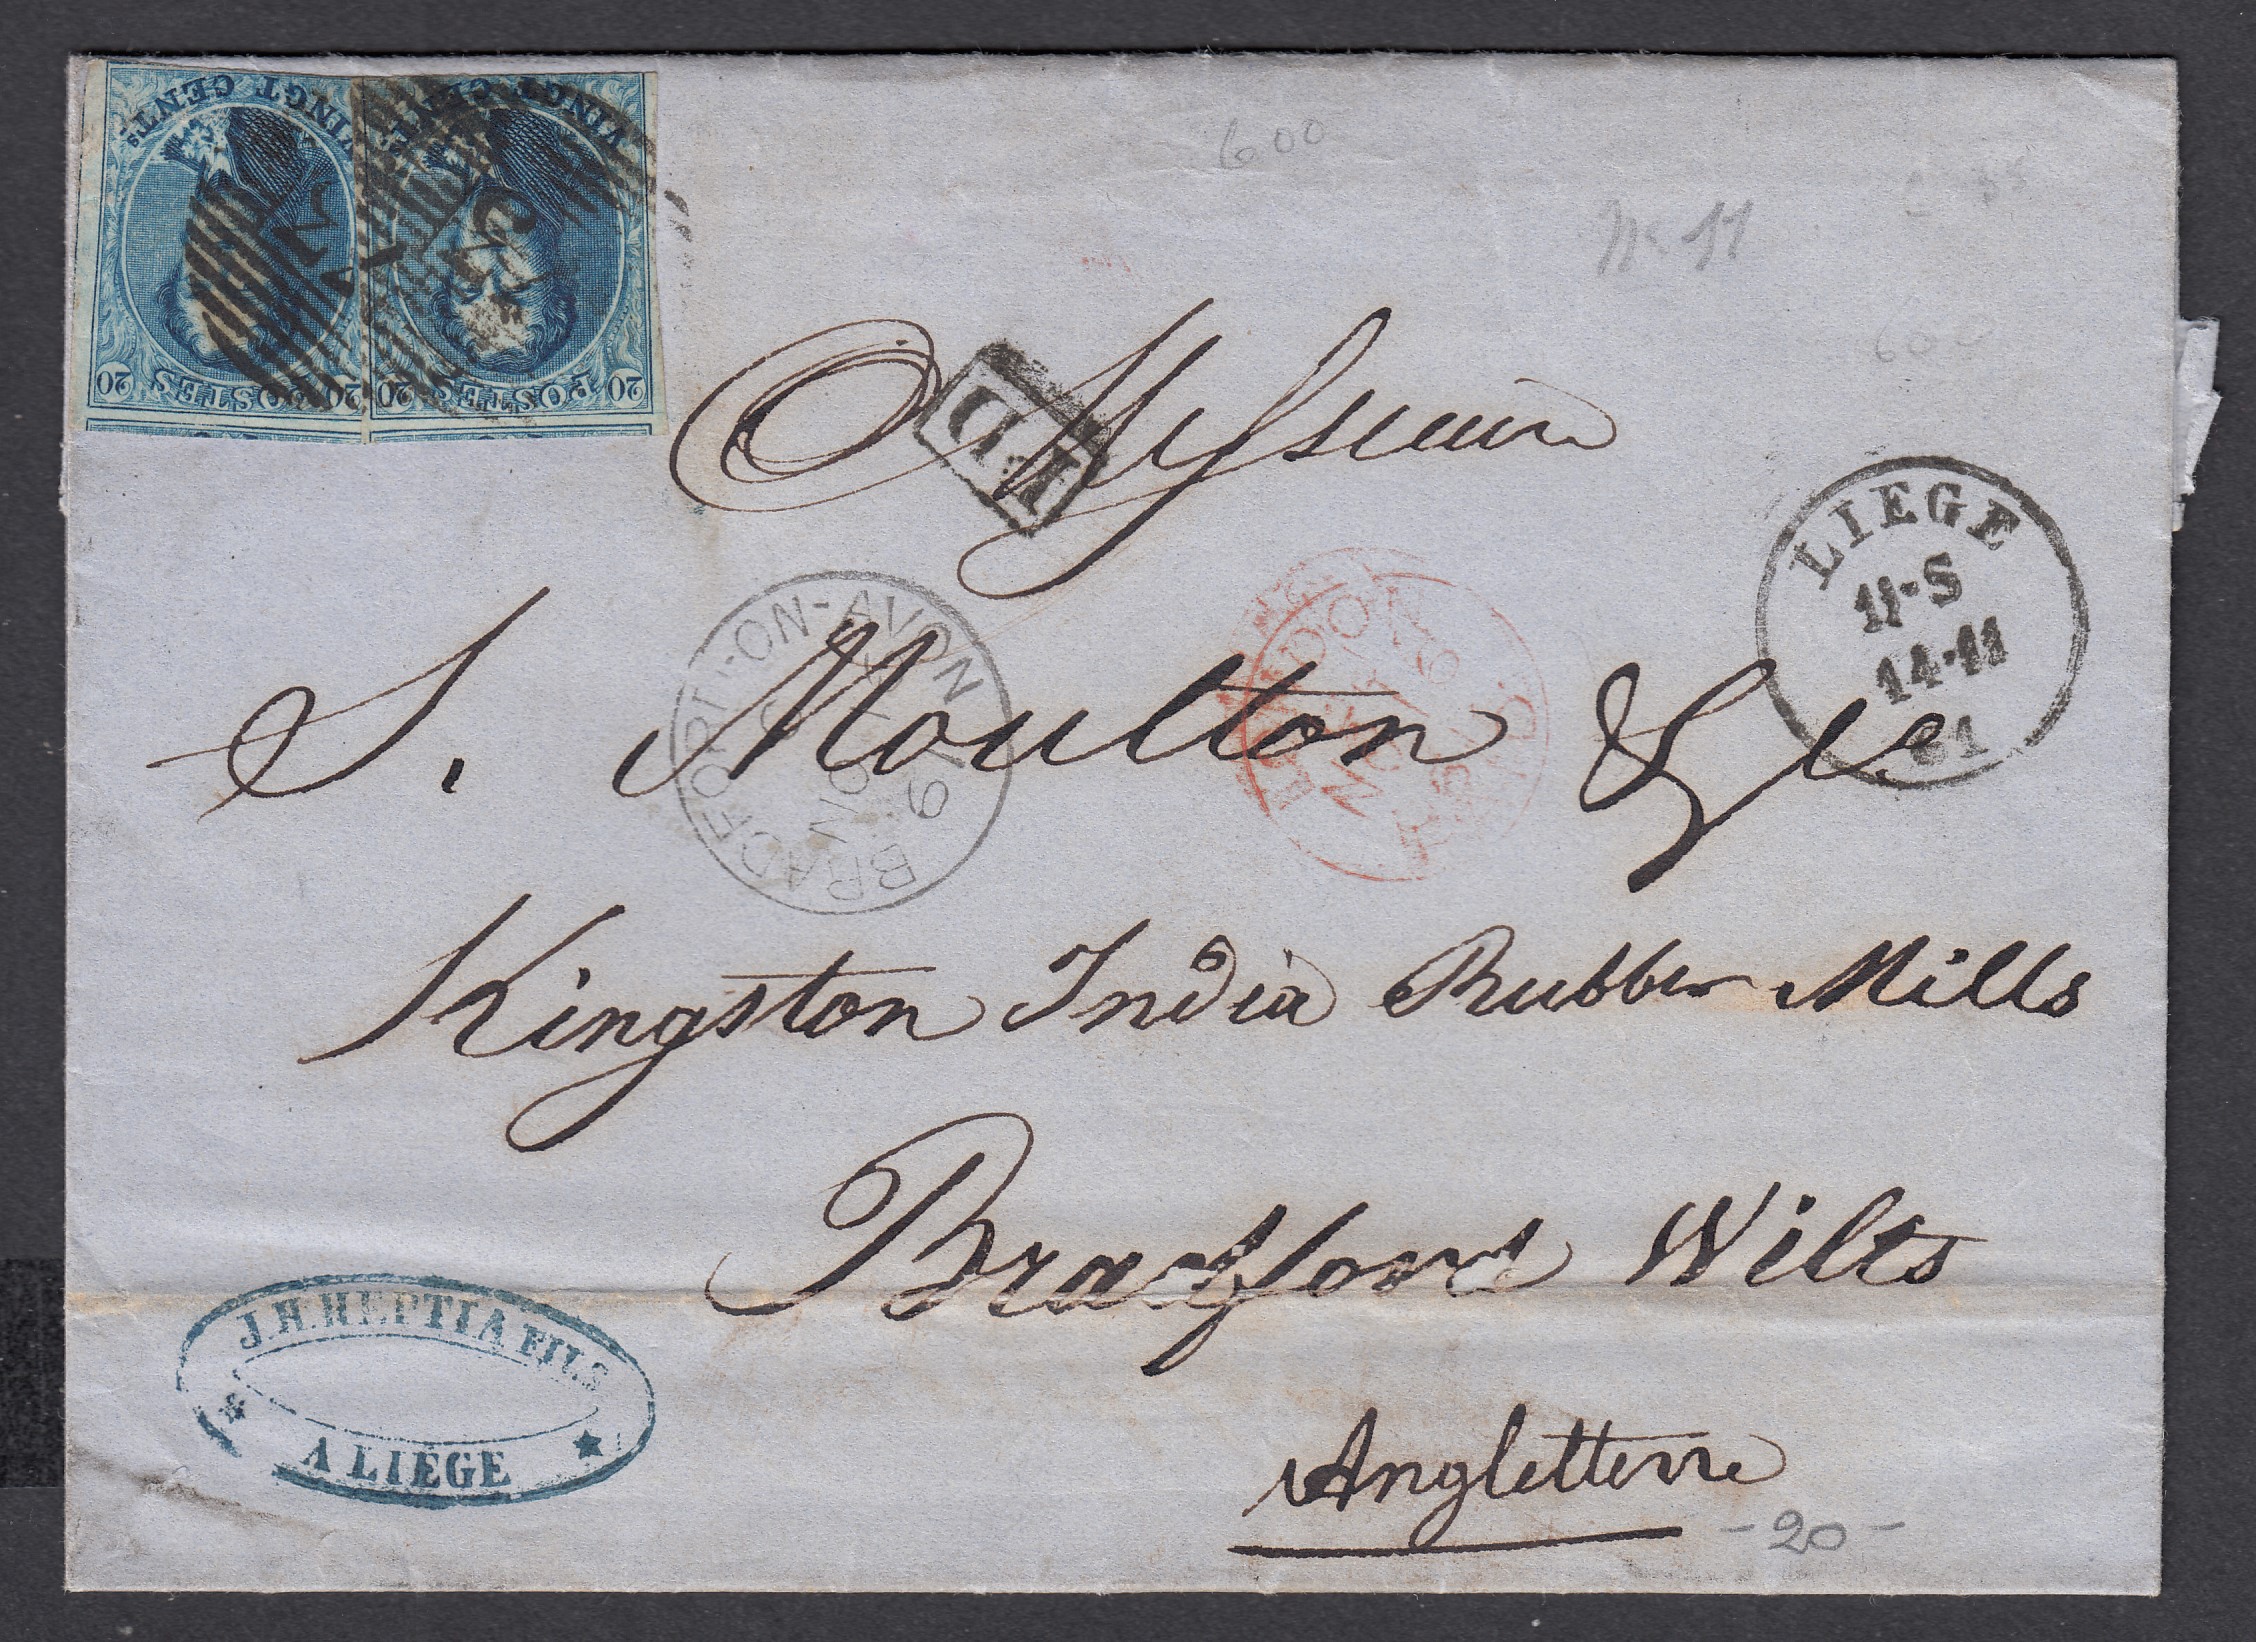 VINGT CENTS
VINGT CENTS
POSTES
20 20
POSTES
20 20
600
No 11
600
PD
LIEGE
11·S
14·11
61
S. Moulton &
BRADFORD-ON-AVON
NO 16
61
LONDON
NO 15
61
Kingston India Rubber Mills
Bradford Wilts
Angleterre
-20-
J. H. HEPTIA FILS
A LIÉGE